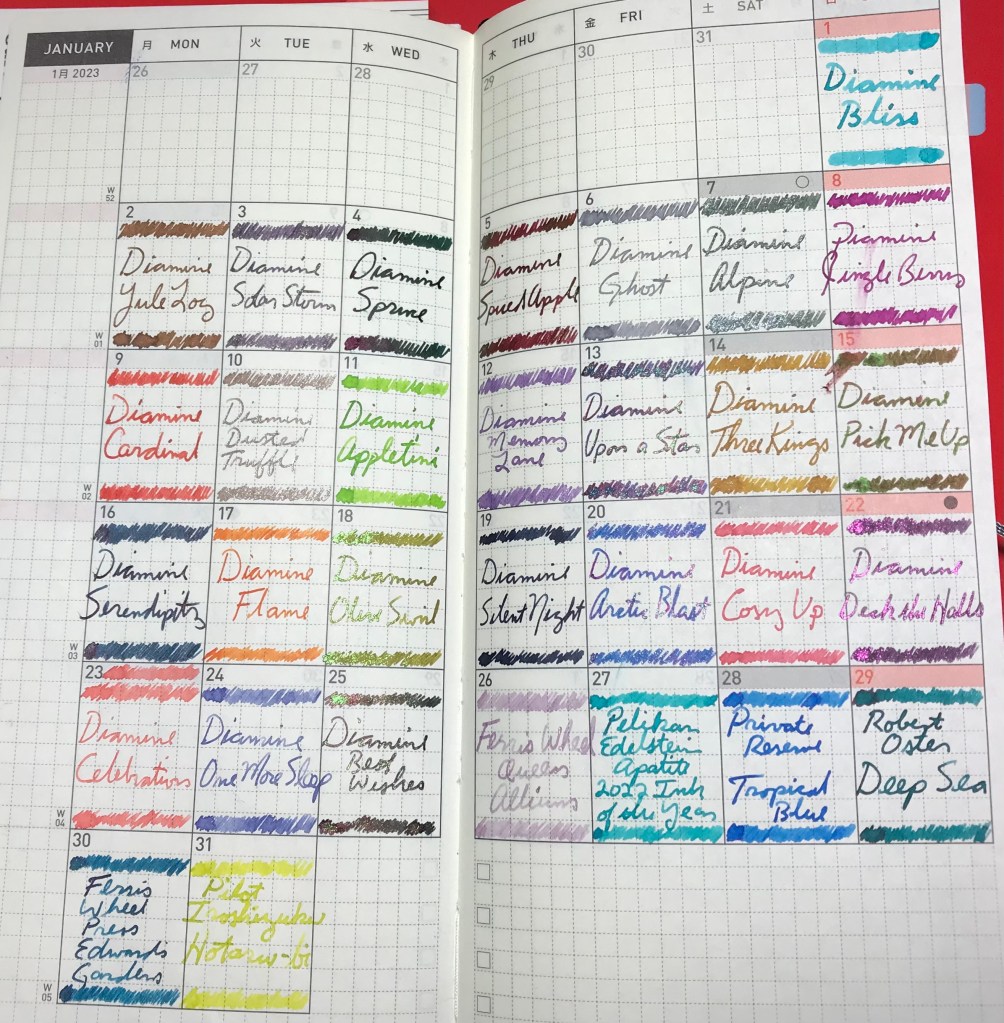 JANUARY 月 MON 火 TUE 水 WED 木 THU 金 FRI 土 SAT 日
1月 2023 26 27 28 29 30 31 1
Diamine
Bliss
W
52
2
Diamine
Yule Log
3
Diamine
Solar Storm
4
Diamine
Spruce
5
Diamine
Spiced Apple
6
Diamine
Ghost
7
Diamine
Alpine
8
Diamine
Jingle Berry
W
01
9
Diamine
Cardinal
10
Diamine
Dusted
Truffle
11
Diamine
Appletini
12
Diamine
Memory
Lane
13
Diamine
Upon a Star
14
Diamine
Three Kings
15
Diamine
Pick Me Up
W
02
16
Diamine
Serendipity
17
Diamine
Flame
18
Diamine
Olive Swirl
19
Diamine
Silent Night
20
Diamine
Arctic Blast
21
Diamine
Cosy Up
22
Diamine
Deck the Halls
W
03
23
Diamine
Celebration
24
Diamine
One More Sleep
25
Diamine
Best
Wishes
26
Ferris Wheel
Queens
Alliums
27
Pelikan
Edelstein
Apatite
2022 Ink
of the Year
28
Private
Reserve
Tropical
Blue
29
Robert
Oster
Deep Sea
W
04
30
Ferris
Wheel
Press
Edwards
Gardens
31
Pilot
Iroshizuku
Hotaru-bi
W
05